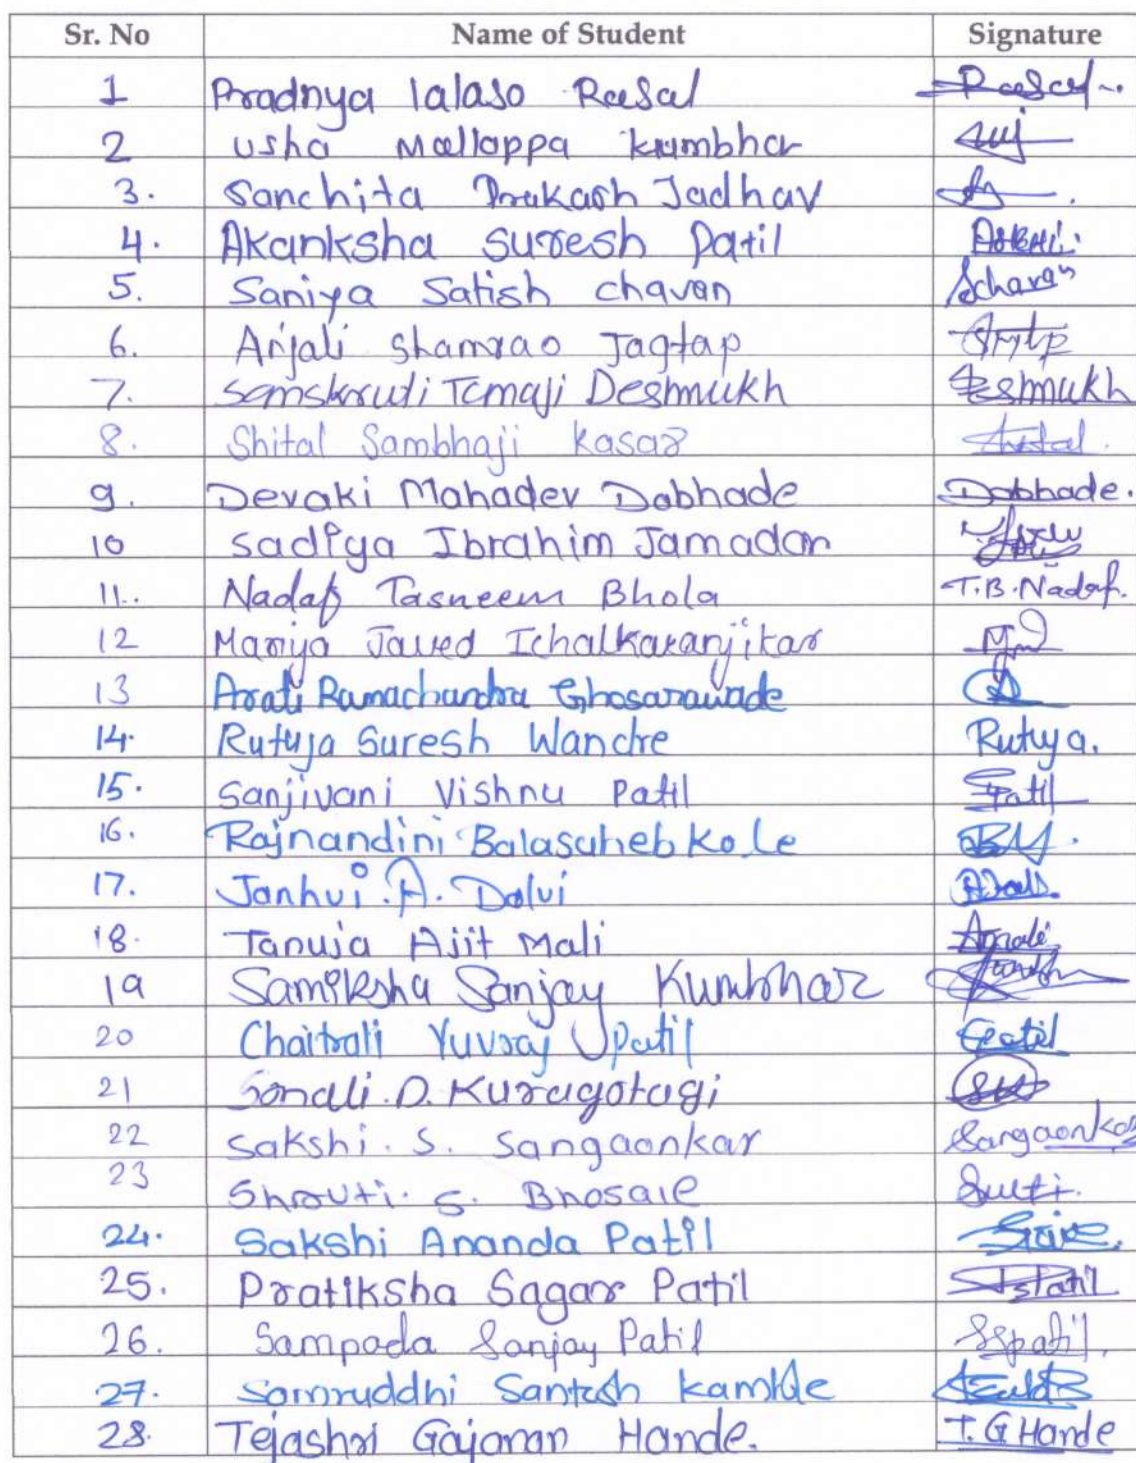 Sr. No Name of Student Signature
1 Pradnya lalaso Rasal Rasal
2 Usha Mallappa kumbhar
3. Sanchita Prakash Jadhav
4. Akanksha Suresh Patil
5. Saniya Satish chavan Schavan
6. Anjali Shamrao Jagtap
7. Samskruti Tamaji Deshmukh Deshmukh
8. Shital Sambhaji Kasar
9. Devaki Mahadev Dabhade Dabhade.
10 Sadiya Ibrahim Jamadar
11. Nadaf Tasneem Bhola T.B.Nadaf.
12 Mariya Javed Ichalkaranjikar
13 Arati Ramachandra Ghosarawade
14. Rutuja Suresh Wandre Rutuja.
15. Sanjivani Vishnu Patil Patil
16. Rajnandini Balasaheb Kole
17. Janhvi.A. Dalvi
18. Tanuja Ajit Mali Amali
19 Samiksha Sanjay Kumbhar
20 Chaitrali Yuvraj Patil Patil
21 Sonali.D.Kuragotagi
22 Sakshi. S. Sangaonkar Sangaonkar
23 Shruti. S. Bhosale
24. Sakshi Ananda Patil
25. Pratiksha Sagar Patil
26. Sampada Sanjay Patil SSpatil.
27. Samruddhi Santosh kamble
28. Tejashri Gajanan Hande. T.G Hande